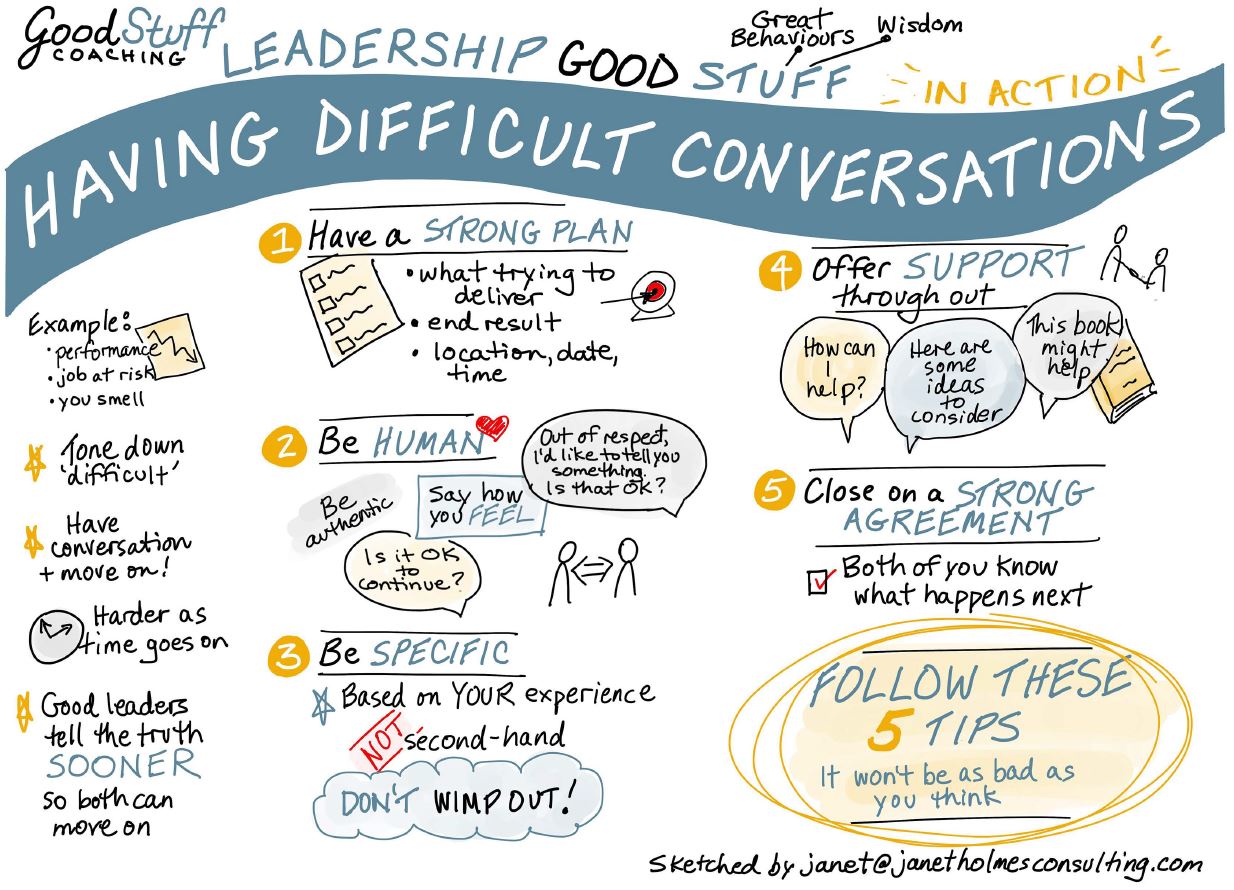 Good Stuff
COACHING
LEADERSHIP GOOD STUFF
Great
Behaviours
Wisdom
IN ACTION
HAVING DIFFICULT CONVERSATIONS
Example:
• performance
• job at risk
• you smell
Tone down
'difficult'
Have
conversation
+ move on!
Harder as
time goes on
Good leaders
tell the truth
SOONER
so both can
move on
1 Have a STRONG PLAN
• what trying to
deliver
• end result
• location, date,
time
2 Be HUMAN
Out of respect,
I'd like to tell you
something.
Is that OK?
Be
authentic
Say how
you FEEL
Is it OK
to
continue?
3 Be SPECIFIC
Based on YOUR experience
NOT second-hand
DON'T WIMP OUT!
4 Offer SUPPORT
through out
How can
I
help?
Here are
some
ideas
to
consider
This book
might
help
5 Close on a STRONG
AGREEMENT
Both of you know
what happens next
FOLLOW THESE
5 TIPS
It won't be as bad as
you think
Sketched by janet@janetholmesconsulting.com